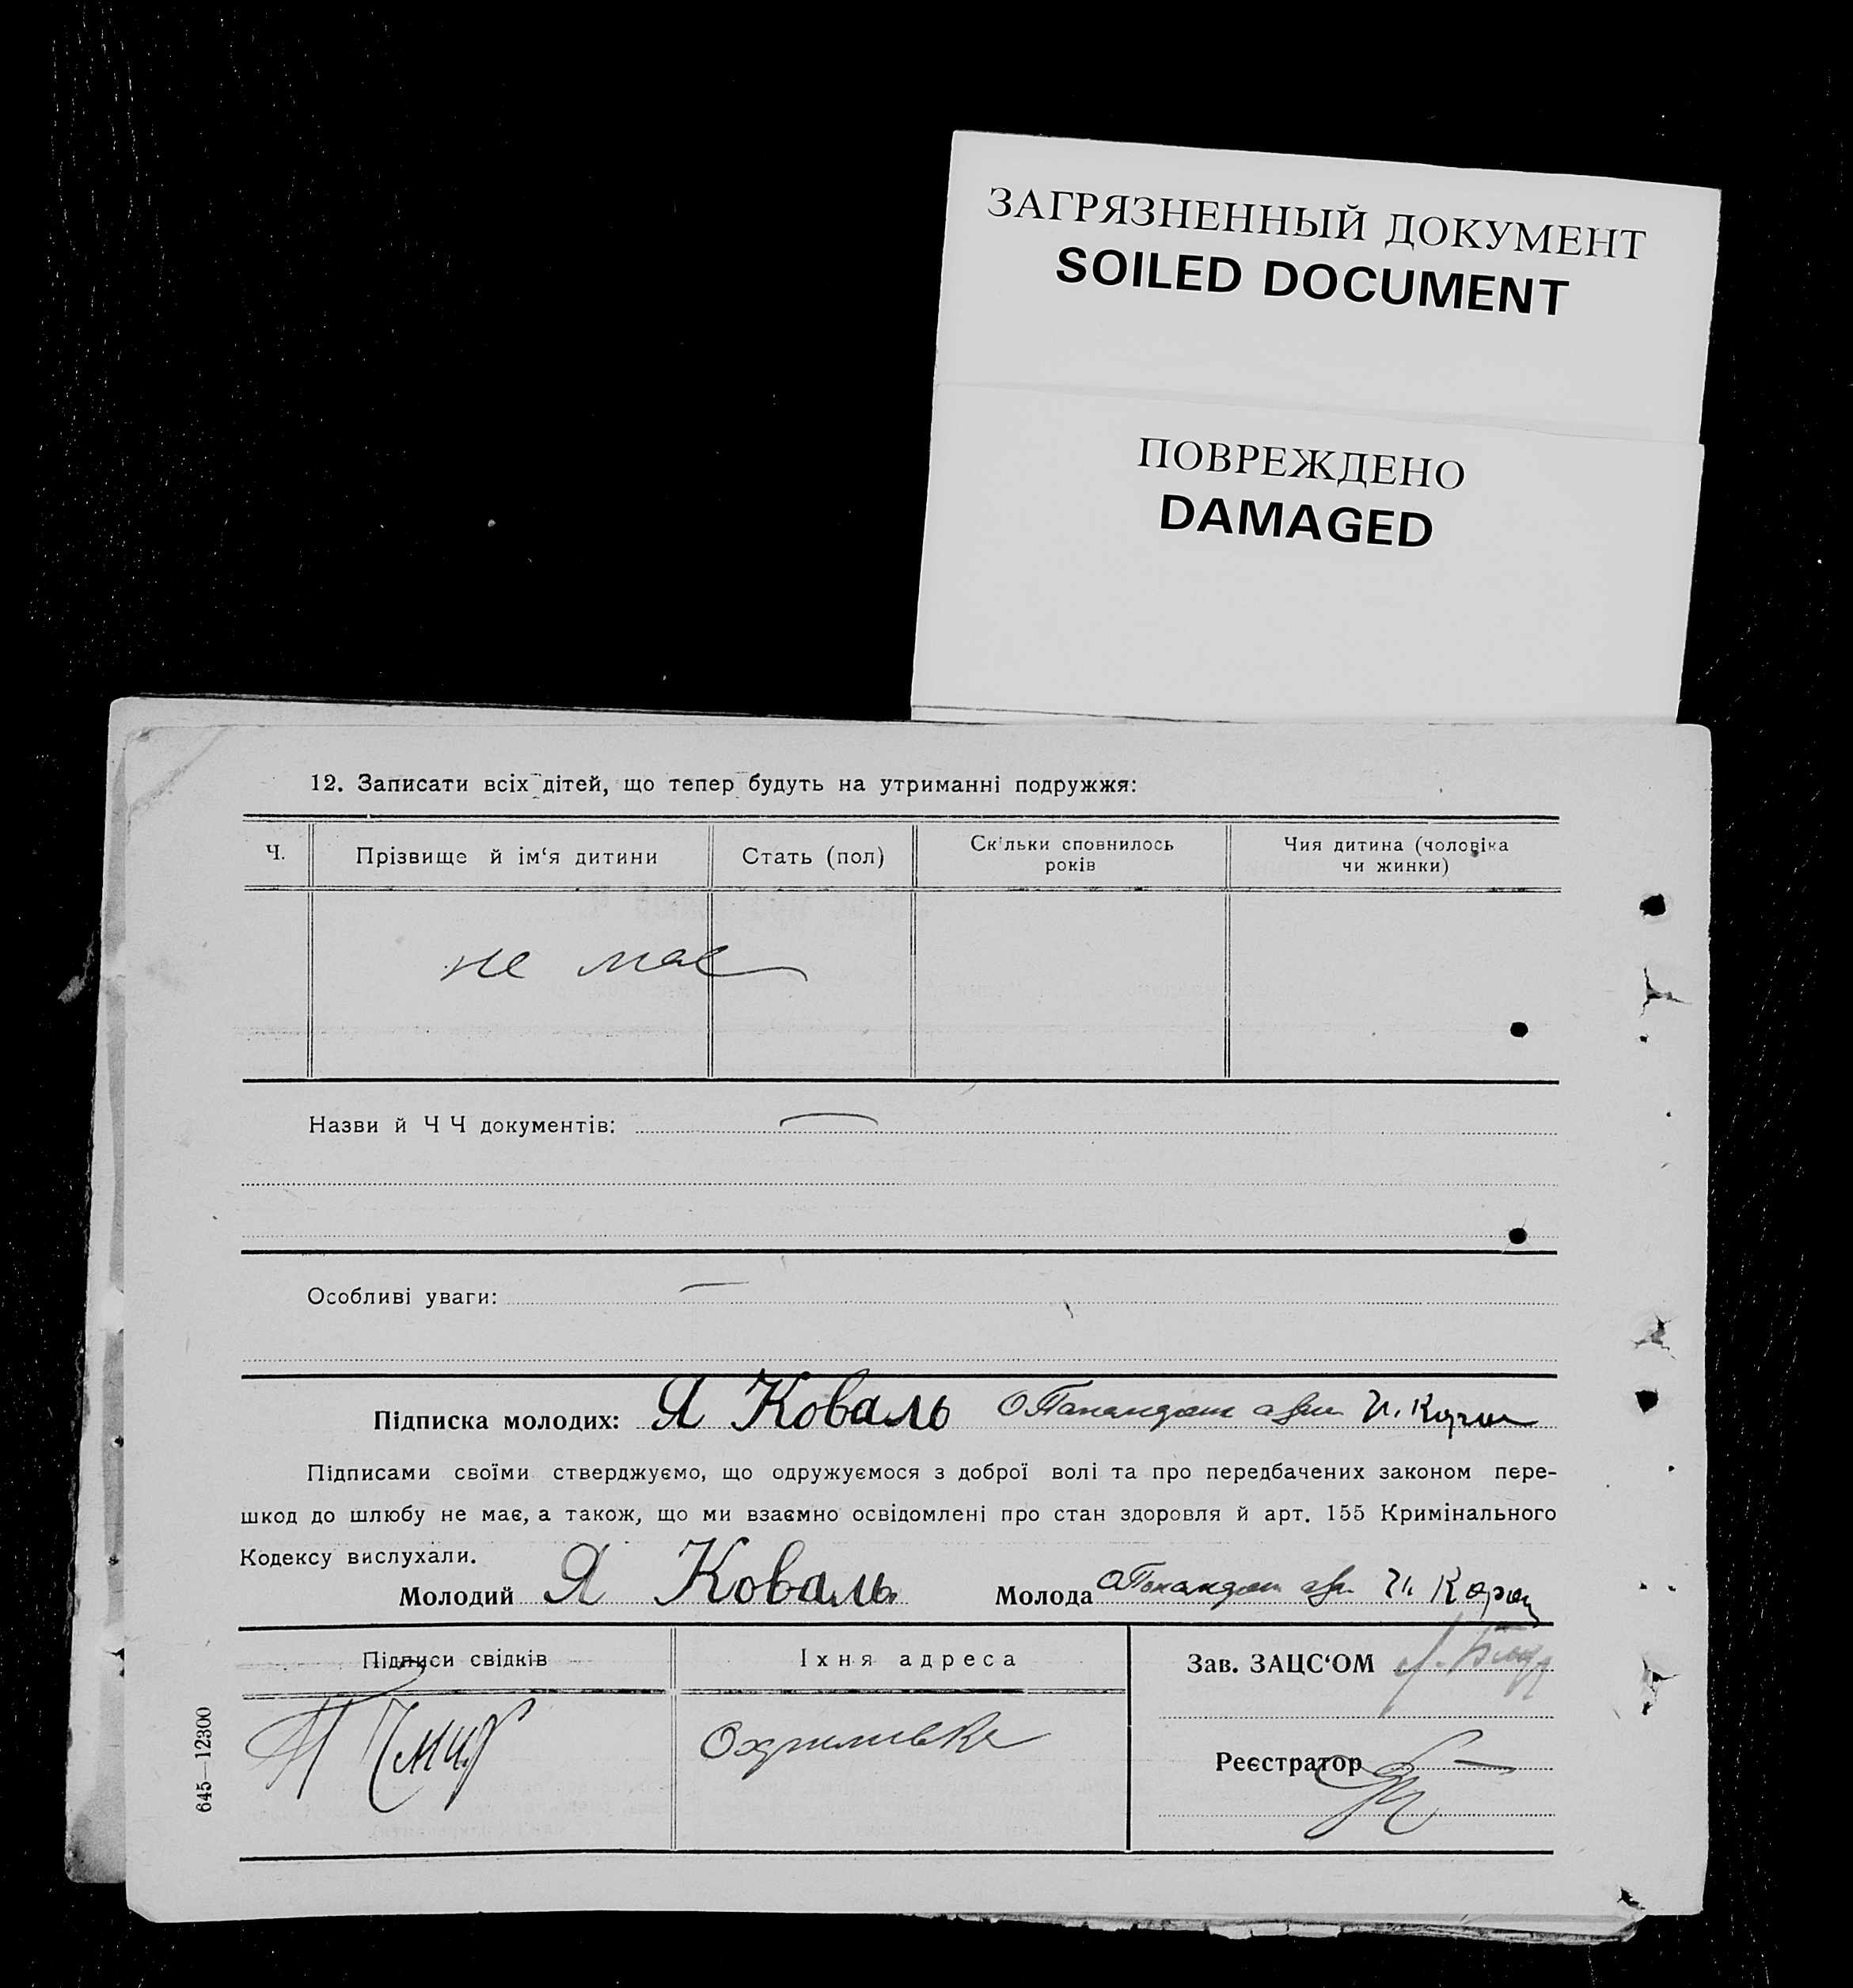 ЗАГРЯЗНЕННЫЙ ДОКУМЕНТ
SOILED DOCUMENT
ПОВРЕЖДЕНО
DAMAGED
12. Записати всіх дітей, що тепер будуть на утриманні подружжя:
Ч.
Прізвище й ім‘я дитини
Стать (пол)
Скільки сповнилось
років
Чия дитина (чоловіка
чи жинки)
не має
Назви й Ч Ч документів:
Особливі уваги:
Підписка молодих: Я Коваль
Підписами своїми стверджуємо, що одружуємося з доброї волі та про передбачених законом пере-
шкод до шлюбу не має, а також, що ми взаємно освідомлені про стан здоровля й арт. 155 Кримінального
Кодексу вислухали.
Молодий Я Коваль Молода
Підписи свідків
Їхня адреса
Зав. ЗАЦС‘ОМ
Реєстратор
645—12300